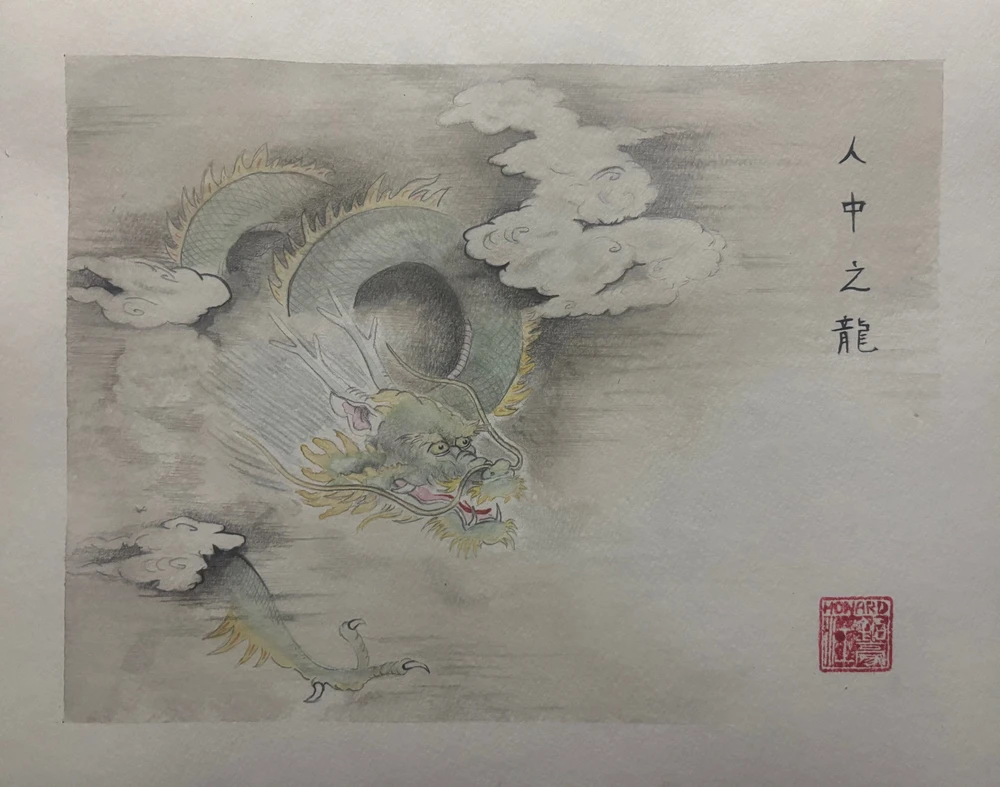 人中之龍
HONARD